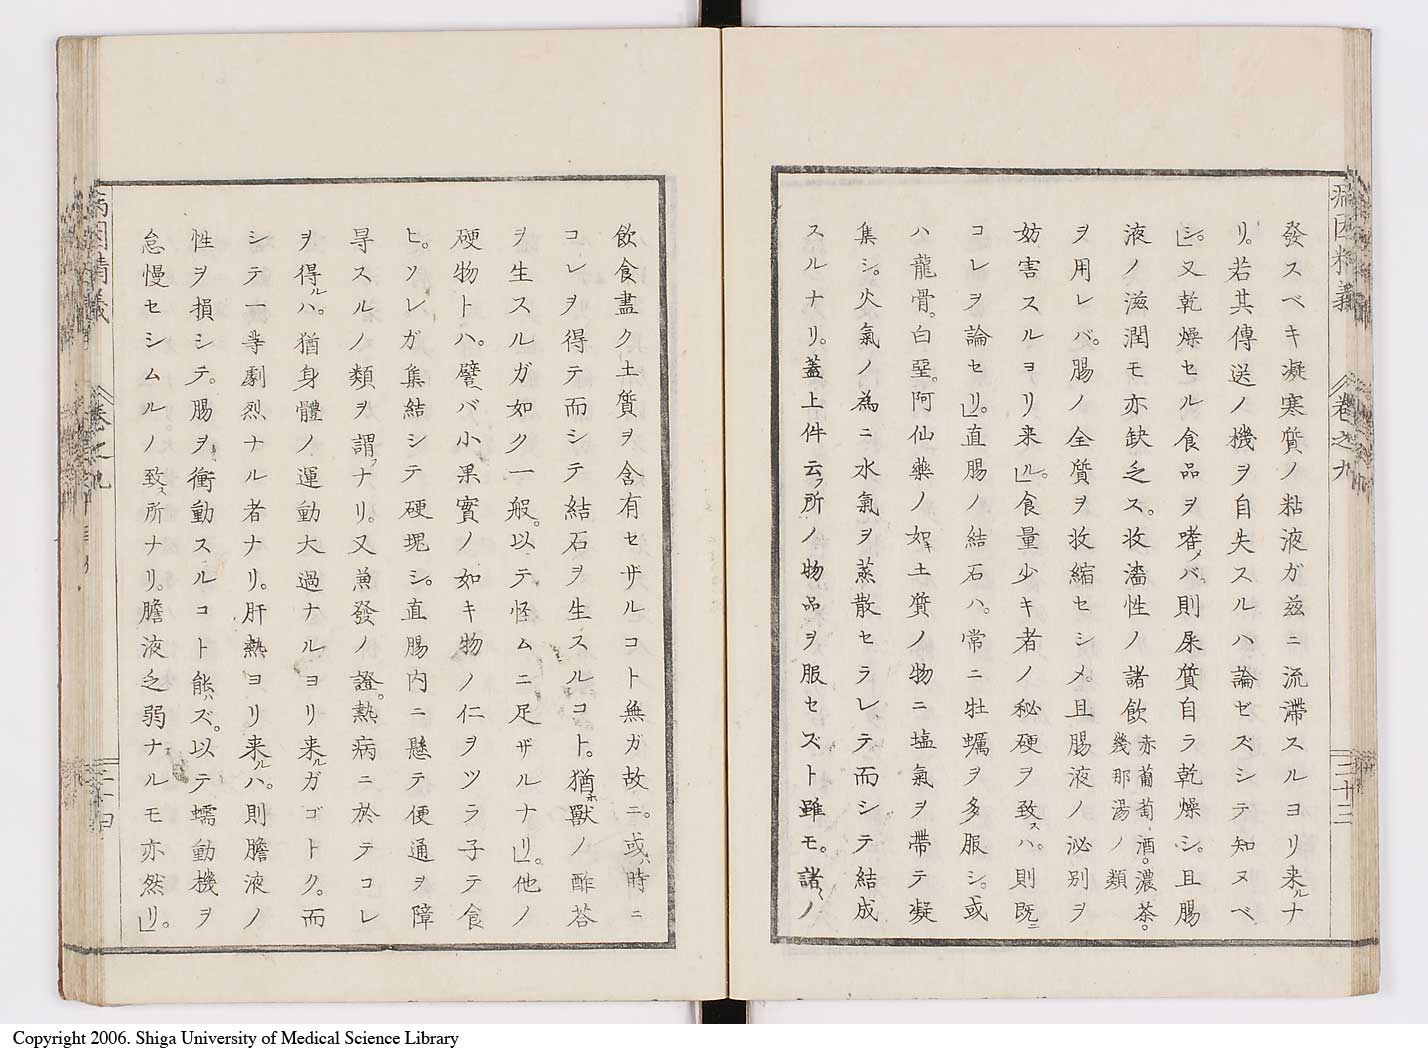 病因精義
卷之九
三十三
發スベキ凝寒質ノ粘液ガ茲ニ流滞スルヨリ来ルナ
リ。若其傳送ノ機ヲ自失スルハ論ゼズシテ知ヌベ
シ。」又乾燥セル食品ヲ嗜メバ。則尿質自ラ乾燥シ。且腸
液ノ滋潤モ亦缺乏ス。收濇性ノ諸飲赤葡萄酒。濃茶。幾那湯ノ類
ヲ用レバ。腸ノ全質ヲ收縮セシメ。且腸液ノ泌別ヲ
妨害スルヨリ来ル。」食量少キ者ノ秘硬ヲ致スハ。則既ニ
コレヲ論セリ。」直腸ノ結石ハ。常ニ牡蠣ヲ多服シ。或
ハ龍骨。白堊。阿仙藥ノ如キ土質ノ物ニ塩氣ヲ帶テ凝
集シ。火氣ノ為ニ水氣ヲ蒸散セラレテ而シテ結成
スルナリ。蓋上件云フ所ノ物品ヲ服セズト雖モ。諸ノ
飲食盡ク土質ヲ含有セザルコト無ガ故ニ。或ハ時ニ
コレヲ得テ而シテ結石ヲ生スルコト。猶ホ獸ノ酢荅
ヲ生スルガ如ク一般。以テ怪ムニ足ザルナリ。」他ノ
硬物トハ。譬ヘバ小果實ノ如キ物ノ仁ヲツラ子テ食
ヒ。ソレガ集結シテ硬塊シ。直腸内ニ懸テ便通ヲ障
㝵スルノ類ヲ謂フナリ。又兼發ノ證。熱病ニ於テコレ
ヲ得ルハ。猶身體ノ運動大過ナルヨリ来ルガゴトク。而
シテ一等劇烈ナル者ナリ。肝熱ヨリ来ルハ。則膽液ノ
性ヲ損シテ。腸ヲ衝動スルコト能ハズ。以テ蠕動機ヲ
怠慢セシムルノ致ス所ナリ。膽液乏弱ナルモ亦然リ。」
病因精義
卷之九
三十四
Copyright 2006. Shiga University of Medical Science Library